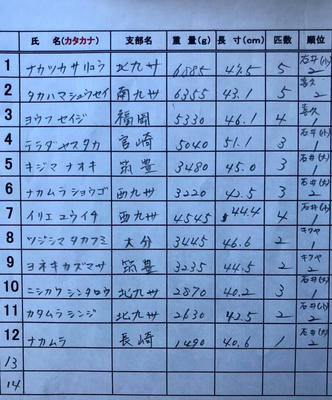 氏 名(カタカナ) 支部名 重 量(g) 長 寸(cm) 匹数 順位
1 ナカツカサリョウ 北九州 6885 47.5 5 石井(小) 2
2 タカハマシュウセイ 南九州 6355 43.1 5 喜久 2
3 ヨウフセイジ 福岡 5330 46.1 4 喜久 1
4 テラダヤスタカ 宮崎 5040 51.1 3 石井(小) 1
5 キジマナオキ 筑豊 3480 45.0 3 石井(大) 1
6 ナカムラショウゴ 西九州 3220 42.5 3 石井(大) 2
7 イリエユウイチ 西九州 4545 44.4 4 石井(大) 1
8 ツジシマタカフミ 大分 3445 46.6 2 キクヤ 1
9 ヨネキカズマサ 筑豊 3235 44.5 2 キクヤ 2
10 ニシカワシンタロウ 北九州 2870 40.2 3 石井(小) 1
11 カタムラシンジ 北九州 2630 42.5 2 石井(小) 2
12 ナカムラ 長崎 1490 40.6 1 石井(大) 2
13
14